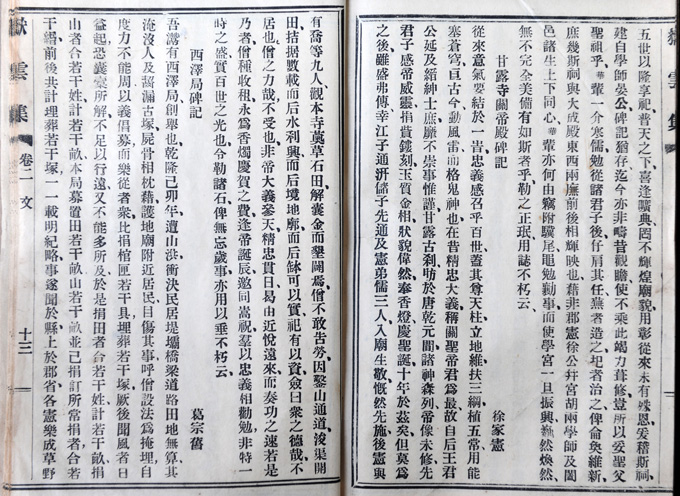 嶽雲集
五世以隆享祀普天之下喜逢曠典罔不輝煌廟貌用彰從來未有恩爰稽斯祠
建自學師晏公碑記猶存迄今亦非疇昔觀瞻使不乘此竭力葺修豈所以爰聖父
聖祖乎華輩一介寒儒勉從諸君子後仔肩其任蕪者造之圮者治之俾侖奐維新
庶幾斯祠與大成殿東西兩廡前後相輝映也藉非郡憲徐公弁宮胡兩學師及闔
邑諸生上下同心華輩亦何由竊附驥尾黽勉勸事而使學宮一旦振興巍然煥然
無不完全美備有如斯者乎勒之正珉用誌不朽云
甘露寺關帝殿碑記
徐家憲
從來意氣要結於一旹忠義感召乎百世蓋其尊天柱立地維扶三綱植五常用能
塞蒼穹亘古今動風雷而格鬼神也在昔精忠大義稱關聖帝君為最故自后王君
公延及縉紳士庶靡不崇事惟謹甘露古刹昉於唐乾元間諸神森列帝像未修先
君子感帝威靈捐貲鏤刻玉質金相狀貌偉然奉香燈慶聖誕十年於茲矣但莫為
之後雖盛弗傳幸江子通汧儲子先通及憲弟儒三人入廟生敬慨然先施後憲與
有喬等九人觀本寺藂草石田解囊金而墾闢焉僧不敢告勞因鑿山通道浚渠開
田拮据數載而后水利興而后境地廓而后缽可以實祀有以資僉曰衆之德哉不
居也僧之力哉不受也非帝大義參天精忠貫日曷由近悅遠來而奏功之速若是
乃者僧種收租永為香燭慶賀之費逢帝誕辰邀同嵩祝羣以忠義相勸勉非特一
時之盛質百世之光也今勒諸石俾無忘歲事亦用以垂不朽云
西澤局碑記
葛宗舊
吾湝有西澤局創舉也乾隆己卯年遭山洪衝決民居堤壩橋梁道路田地無算其
淹沒人及暠漏古塚屍骨相枕藉護地廟附近居民目傷其事呼僧設法為掩埋自
度力不能周以義倡募而樂從者衆比捐棺匣若干具埋葬若干塚厥後聞風者日
益起恐囊橐所解不足以行遠又不能多所及於是捐田者合若干姓計若干畝捐
山者合若干姓計若干畝本局募置田若干畝山若干畝並己捐訂所常捐者合若
干緡前後共計埋葬若干塚一一載明紀略事遂聞於縣上於郡省各憲樂成草野
嶽雲集
卷二 文
十三